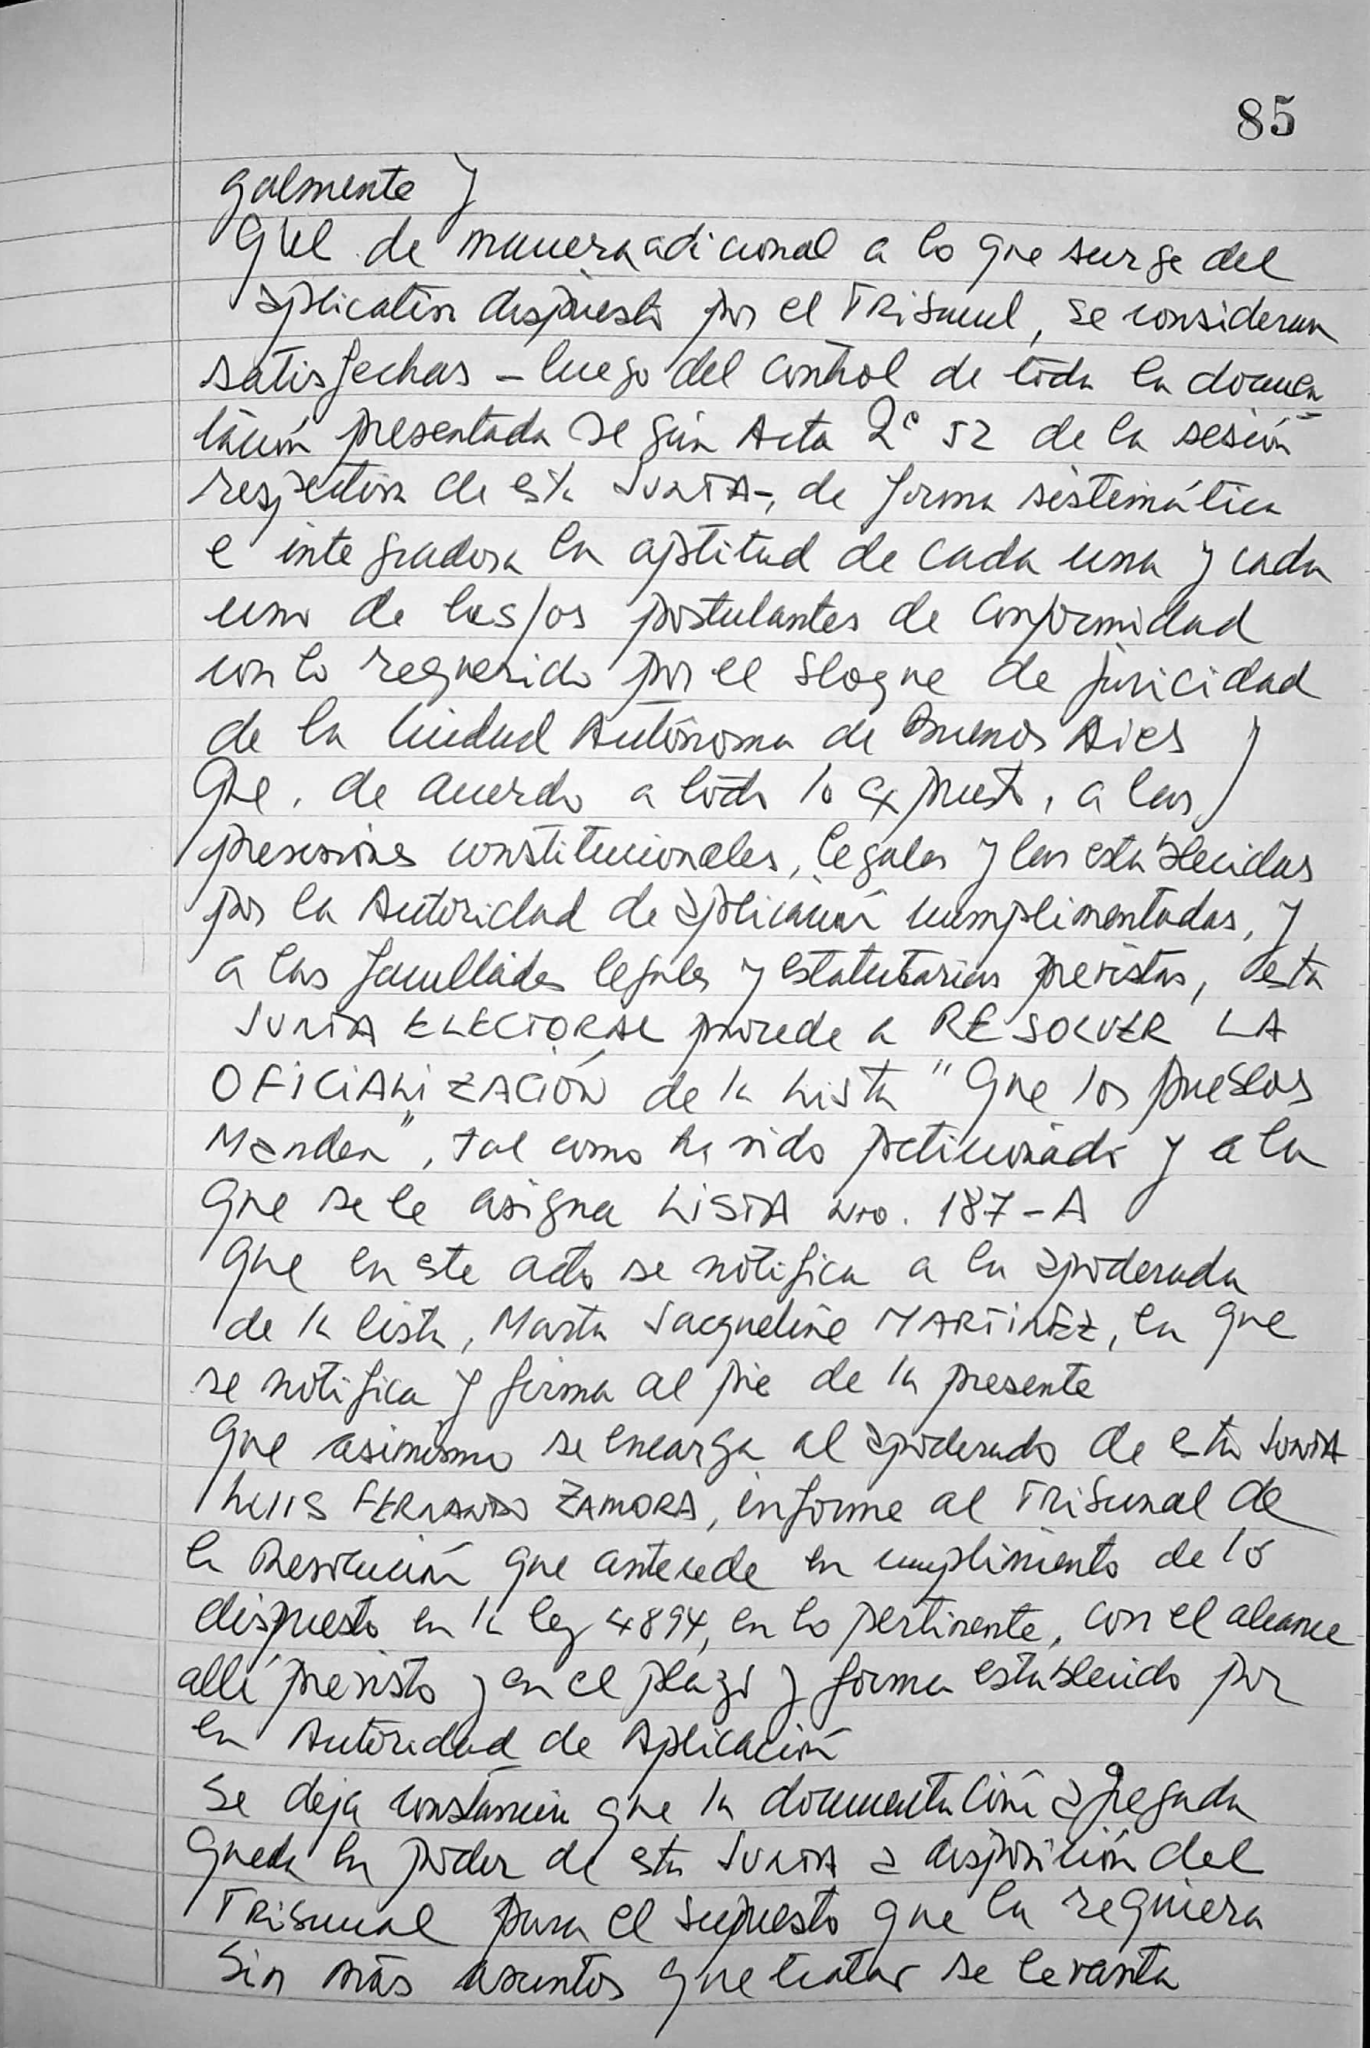 85
galmente y
Que de manera adicional a lo que surge del
aplicativo dispuesto por el Tribunal, se consideran
satisfechas - luego del control de toda la documen
tación presentada según Acta 52 de la sesión
respectiva de esta JUNTA-, de forma sistemática
e integradora la aptitud de cada una y cada
uno de las/os postulantes de conformidad
con lo requerido por el bloque de juricidad
de la Ciudad Autónoma de Buenos Aires y
Que, de acuerdo a todo lo expuesto, a las
constitucionales, legales y las establecidas
por la Autoridad de aplicación cumplimentadas, y
a las facultades legales y estatutarias previstas, esta
JUNTA ELECTORAL procede a RESOLVER LA
OFICIALIZACIÓN de la Lista "Que los pueblos
Manden", tal como ha sido peticionado y a la
que se le asigna LISTA Nro. 187-A
Que en este acto se notifica a la apoderada
de la lista, Marta Jacqueline MARTINEZ, la que
se notifica y firma al pie de la presente
Que asimismo se encarga al apoderado de esta JUNTA
LUIS FERNANDO ZAMORA, informe al Tribunal de
la Resolución que antecede en cumplimiento de lo
dispuesto en la ley 4894, en lo pertinente, con el alcance
allí previsto y en el plazo y forma establecido por
la Autoridad de Aplicación
Se deja constancia que la documentación agregada
queda en poder de esta JUNTA a disposición del
Tribunal para el supuesto que la requiera
Sin más asuntos que tratar se levanta